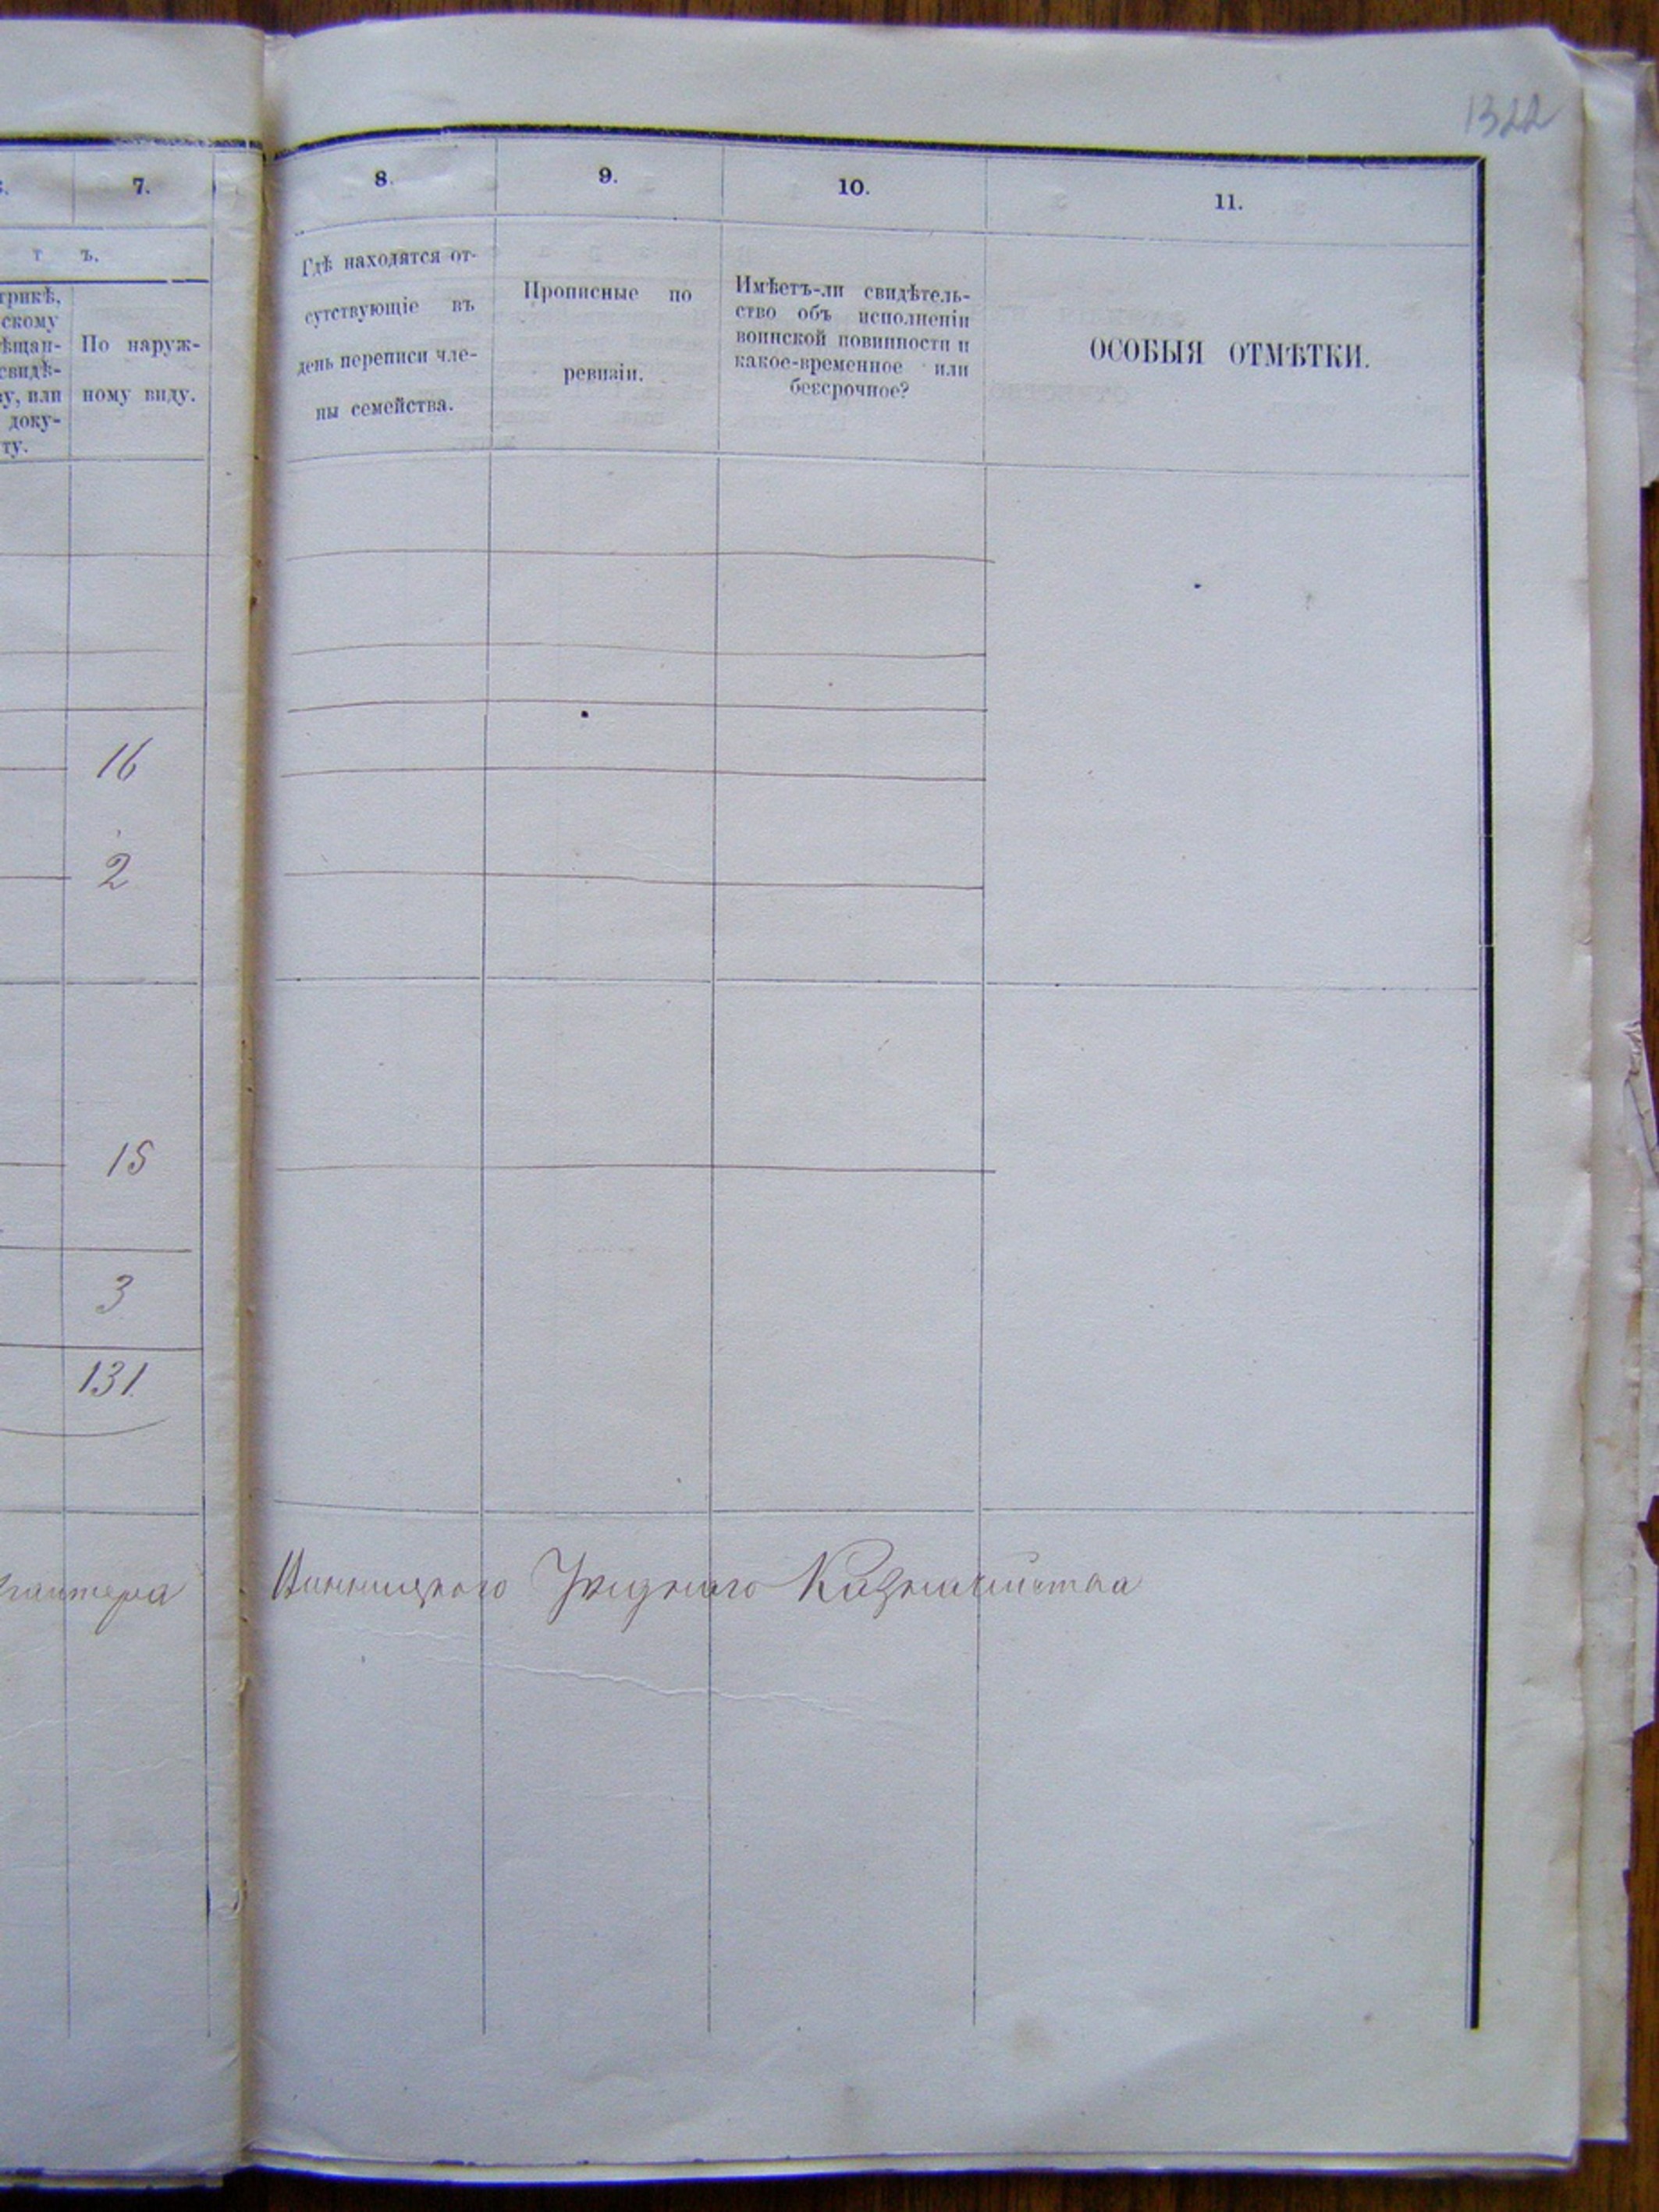 1322
7.
т ъ.
трикѣ,
скому
ѣщан-
свидѣ-
или
доку-
ту.
По наруж-
ному виду.
16
2
15
3
131
8.
Гдѣ находятся от-
сутствующіе въ
день переписи чле-
ны семейства.
9.
Прописные по
ревизіи.
10.
Имѣетъ-ли свидѣтель-
ство объ исполненіи
воинской повинности и
какое-временное или
безсрочное?
11.
ОСОБЫЯ ОТМѢТКИ.
Винницкого Уѣзднаго Казначейства